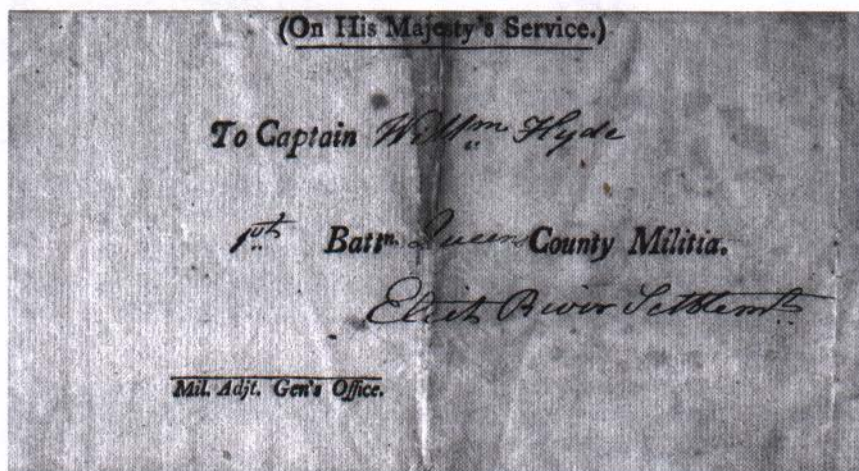 (On His Majesty's Service.)
To Captain Willm Hyde
1st Battn. Queens County Militia.
Eliot River Settlemt
Mil. Adjt. Gen's Office.